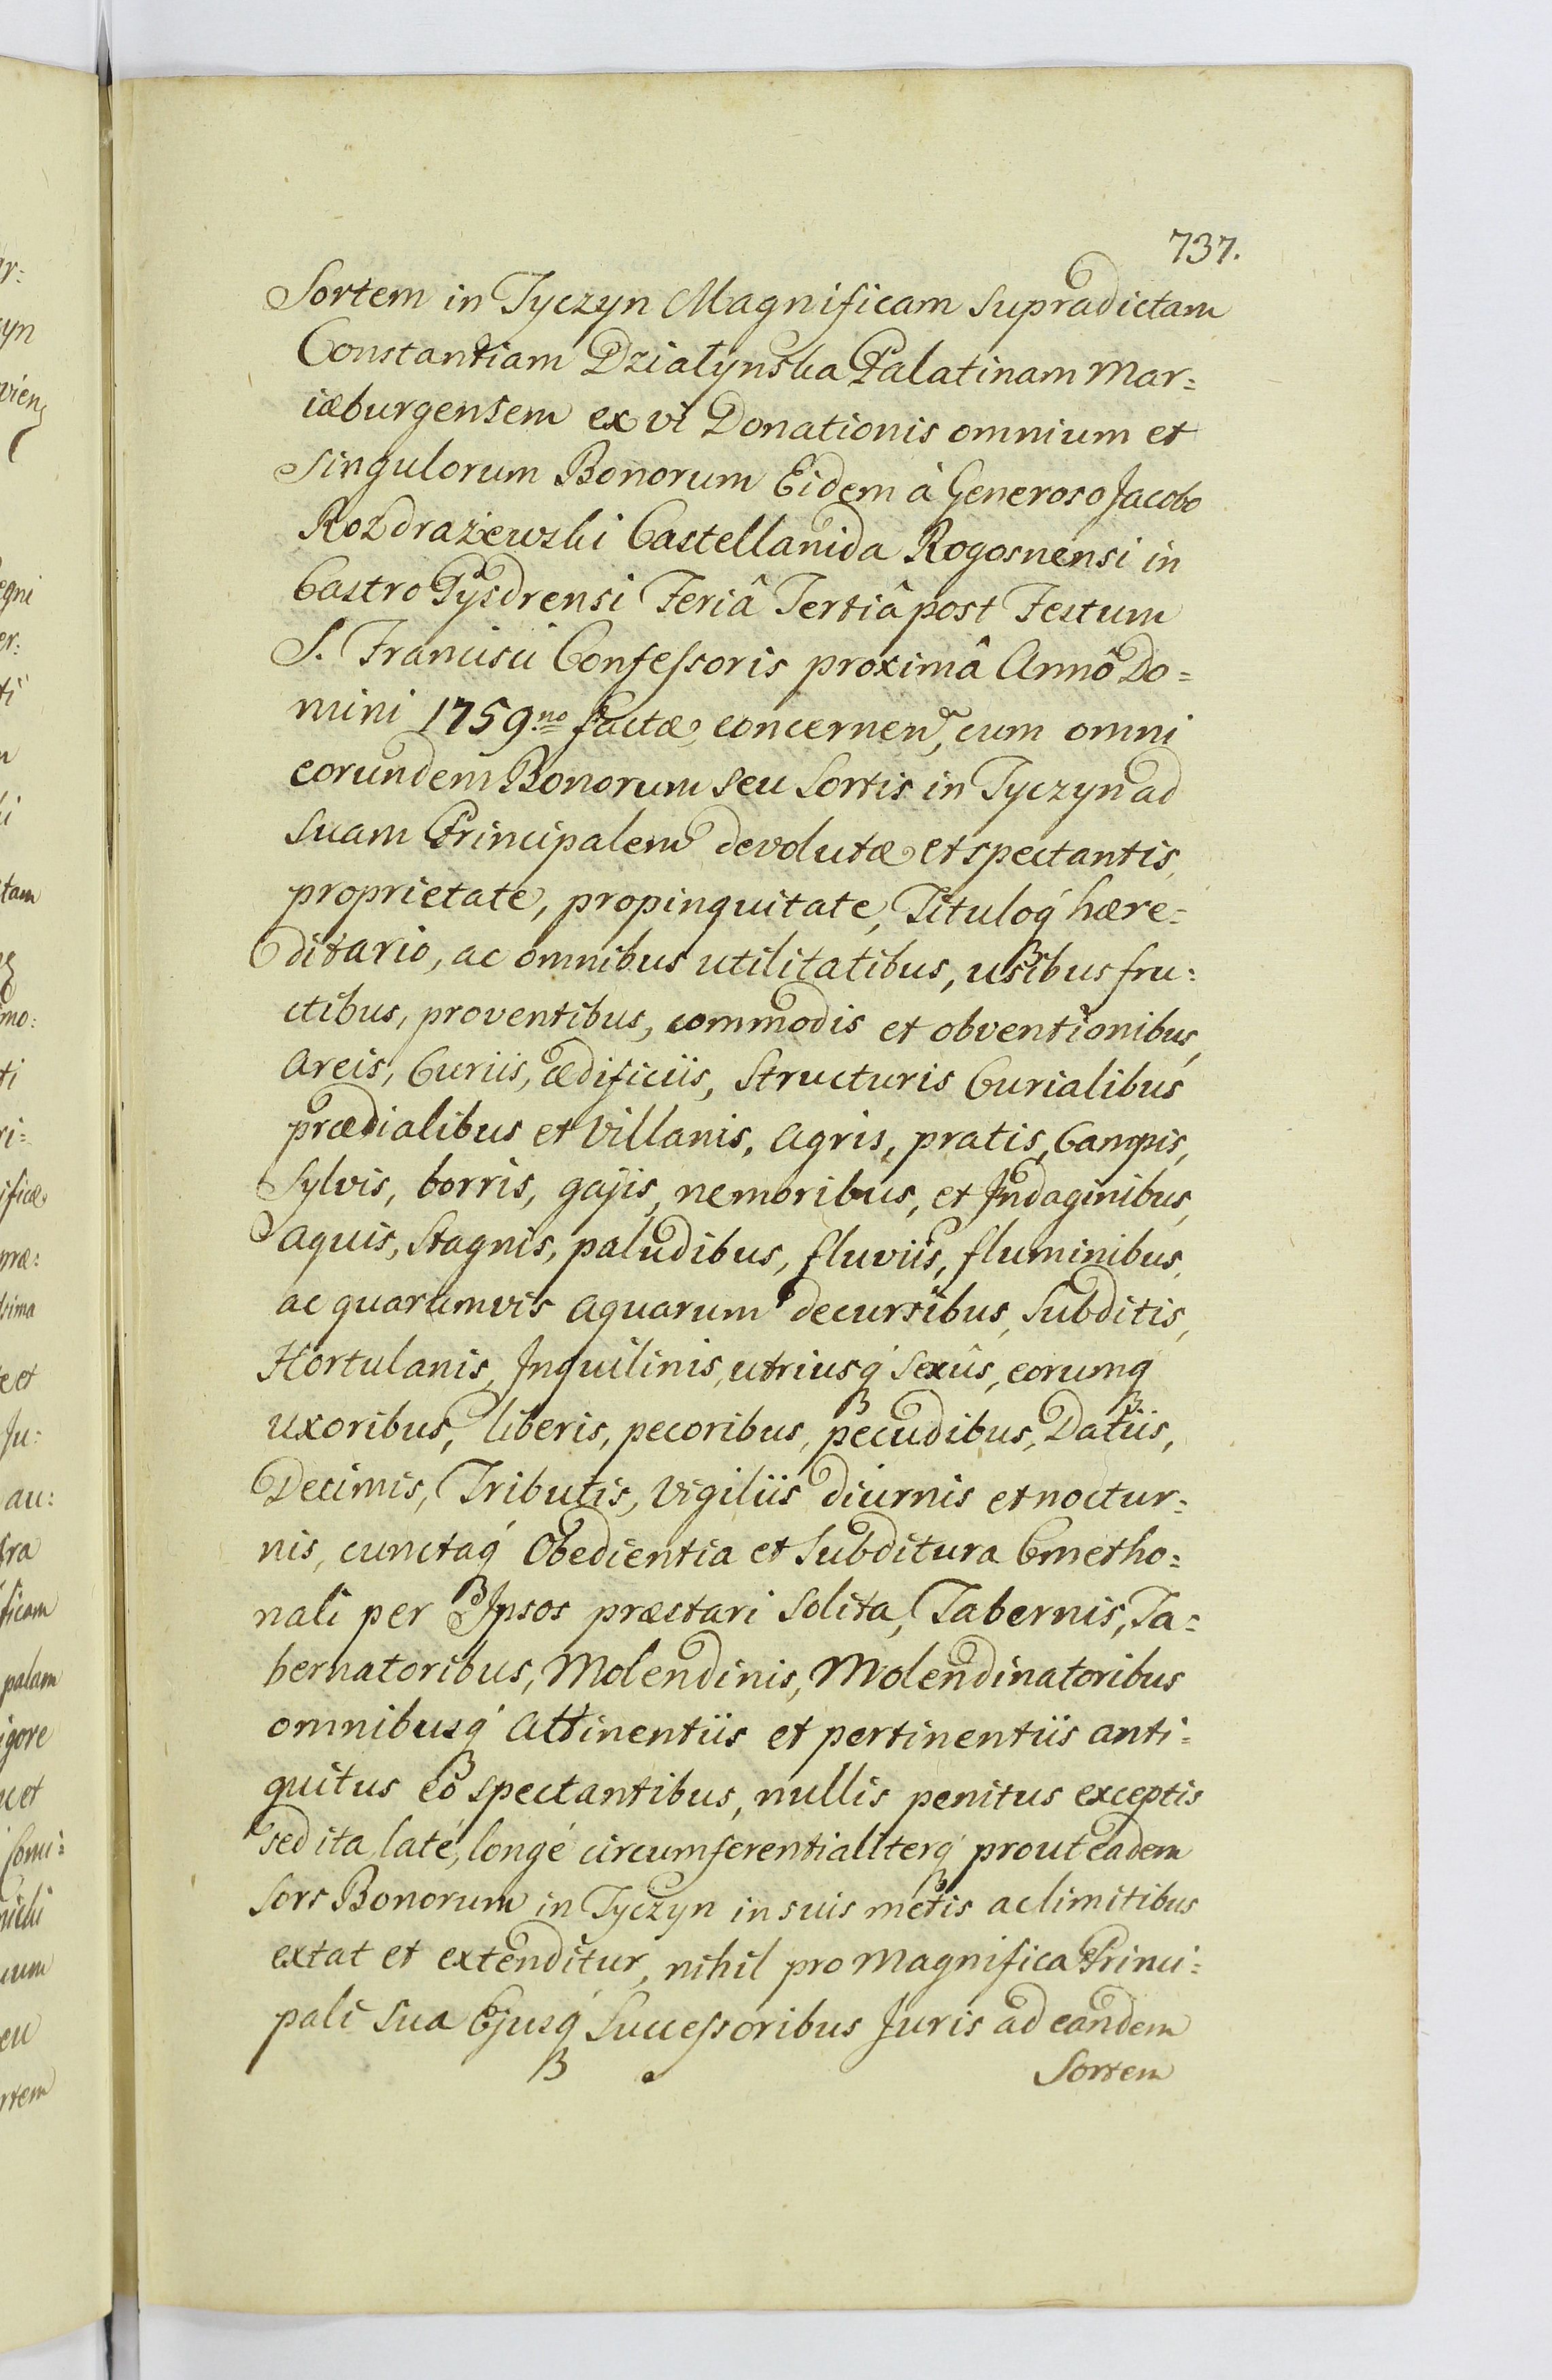 737.
Sortem in Tyczyn Magnificam supradictam
Constantiam Działynska Palatinam Mar=
iæburgensem ex vi Donationis omnium et
singulorum Bonorum Eidem à Generoso Jacobo
Rozdrażewski Castellanida Rogosnensi in
Castro Pysdrensi Feriâ Tertiâ post Festum
S. Francisci Confessoris proximâ Annô Do=
mini 1759no factæ, concernen, cum omni
eorundem Bonorum seu Sortis in Tyczyn ad
suam Principalem devolutæ et spectantis
proprietate, propinquitate, Tituloq́ hære=
ditario, ac omnibus utilitatibus, usibus fru=
ctibus, proventibus, commodis et obventionibus,
Areis, Curiis, ædificiis, Structuris Curialibus
prædialibus et Villanis, Agris, pratis, Campis,
Sylvis, borris, gajis, nemoribus, et Indaginibus,
Aquis, Stagnis, paludibus, fluviis, fluminibus,
ac quarumvis aquarum decursibus, Subditis,
Hortulanis, Inquilinis, utriusq́ Sexûs, eorumq́
uxoribus, liberis, pecoribus, pecudibus, Datiis,
Decimis, Tributis, Vigiliis diurnis et noctur=
nis, cunctaq́ Obedientia et Subditura Cmetho=
nali per Ipsos præstari Solita, Tabernis, Ta=
bernatoribus, Molendinis, Molendinatoribus
omnibusq́ Attinentiis et pertinentiis anti=
quitus eô spectantibus, nullis penitus exceptis
sed ita, laté, longé circumferentialiterq́ prout eadem
Sors Bonorum in Tyczyn in suis metis ac limitibus
extat et extenditur, nihil pro Magnifica Princi=
pali sua Ejusq́ Successoribus Juris ad eandem
Sortem